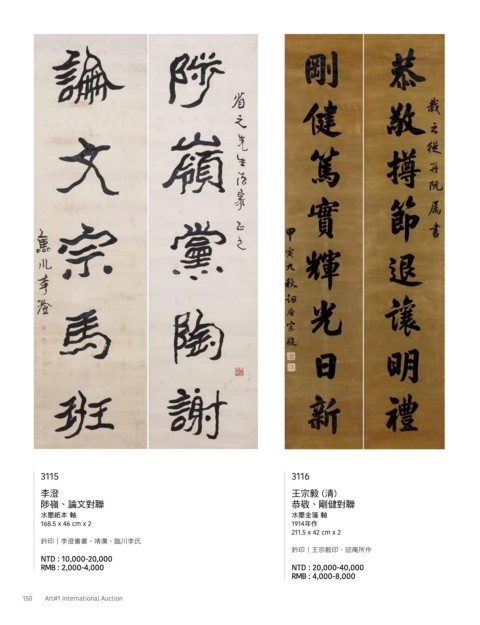 陟嶺黨陶謝
省之先生法家正之
論文宗馬班
李澄
恭敬撙節退讓明禮
剛健篤實輝光日新
甲寅九秋
宗毅
3115
李澄
陟嶺、論文對聯
水墨紙本 軸
168.5 x 46 cm x 2
鈐印｜李澄書畫、靖瀾、臨川李氏
NTD : 10,000-20,000
RMB : 2,000-4,000
3116
王宗毅 (清)
恭敬、剛健對聯
水墨金箋 軸
1914年作
211.5 x 42 cm x 2
鈐印｜王宗毅印、詔庵所作
NTD : 20,000-40,000
RMB : 4,000-8,000
150 Art#1 International Auction